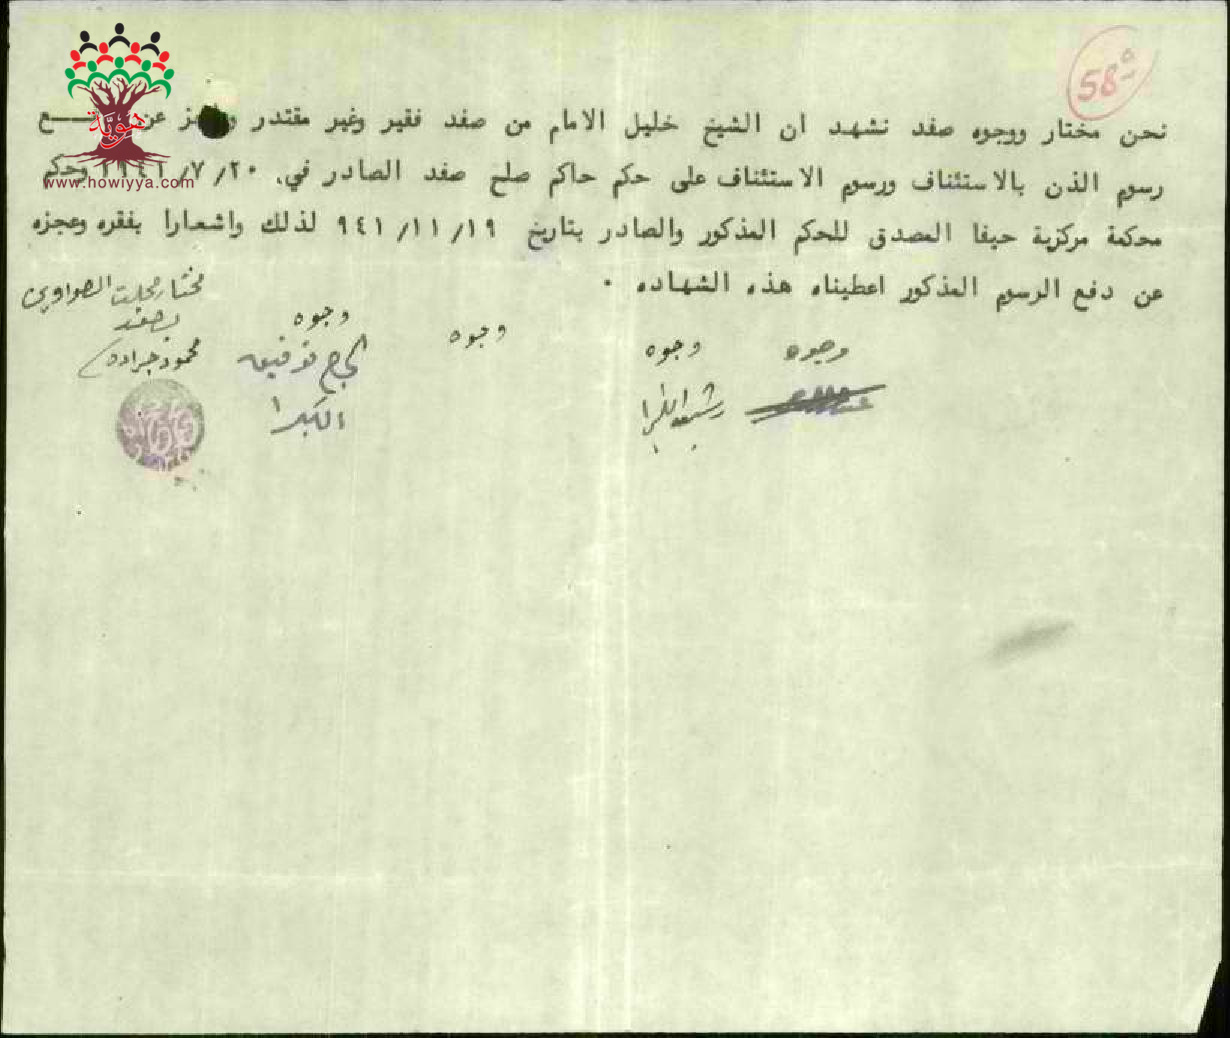 58
هوية
www.howiyya.com
نحن مختار ووجوه صفد نشهد ان الشيخ خليل الامام من صفد فقير وغير مقتدر وعاجز عن دفـــع
رسوم الاذن بالاستئناف ورسوم الاستئناف على حكم حاكم صلح صفد الصادر في ٢٠/٧/١٩٤١ وحكم
محكمة مركزية حيفا المصدق للحكم المذكور والصادر بتاريخ ١٩/١١/٩٤١ لذلك واشعارا بفقره وعجزه
عن دفع الرسوم المذكور اعطيناه هذه الشهاده .
وجوه
وجوه
رشيد
وجوه
وجوه
الحاج توفيق
مختار محلة الصواوين
بصفد
محمود جراده